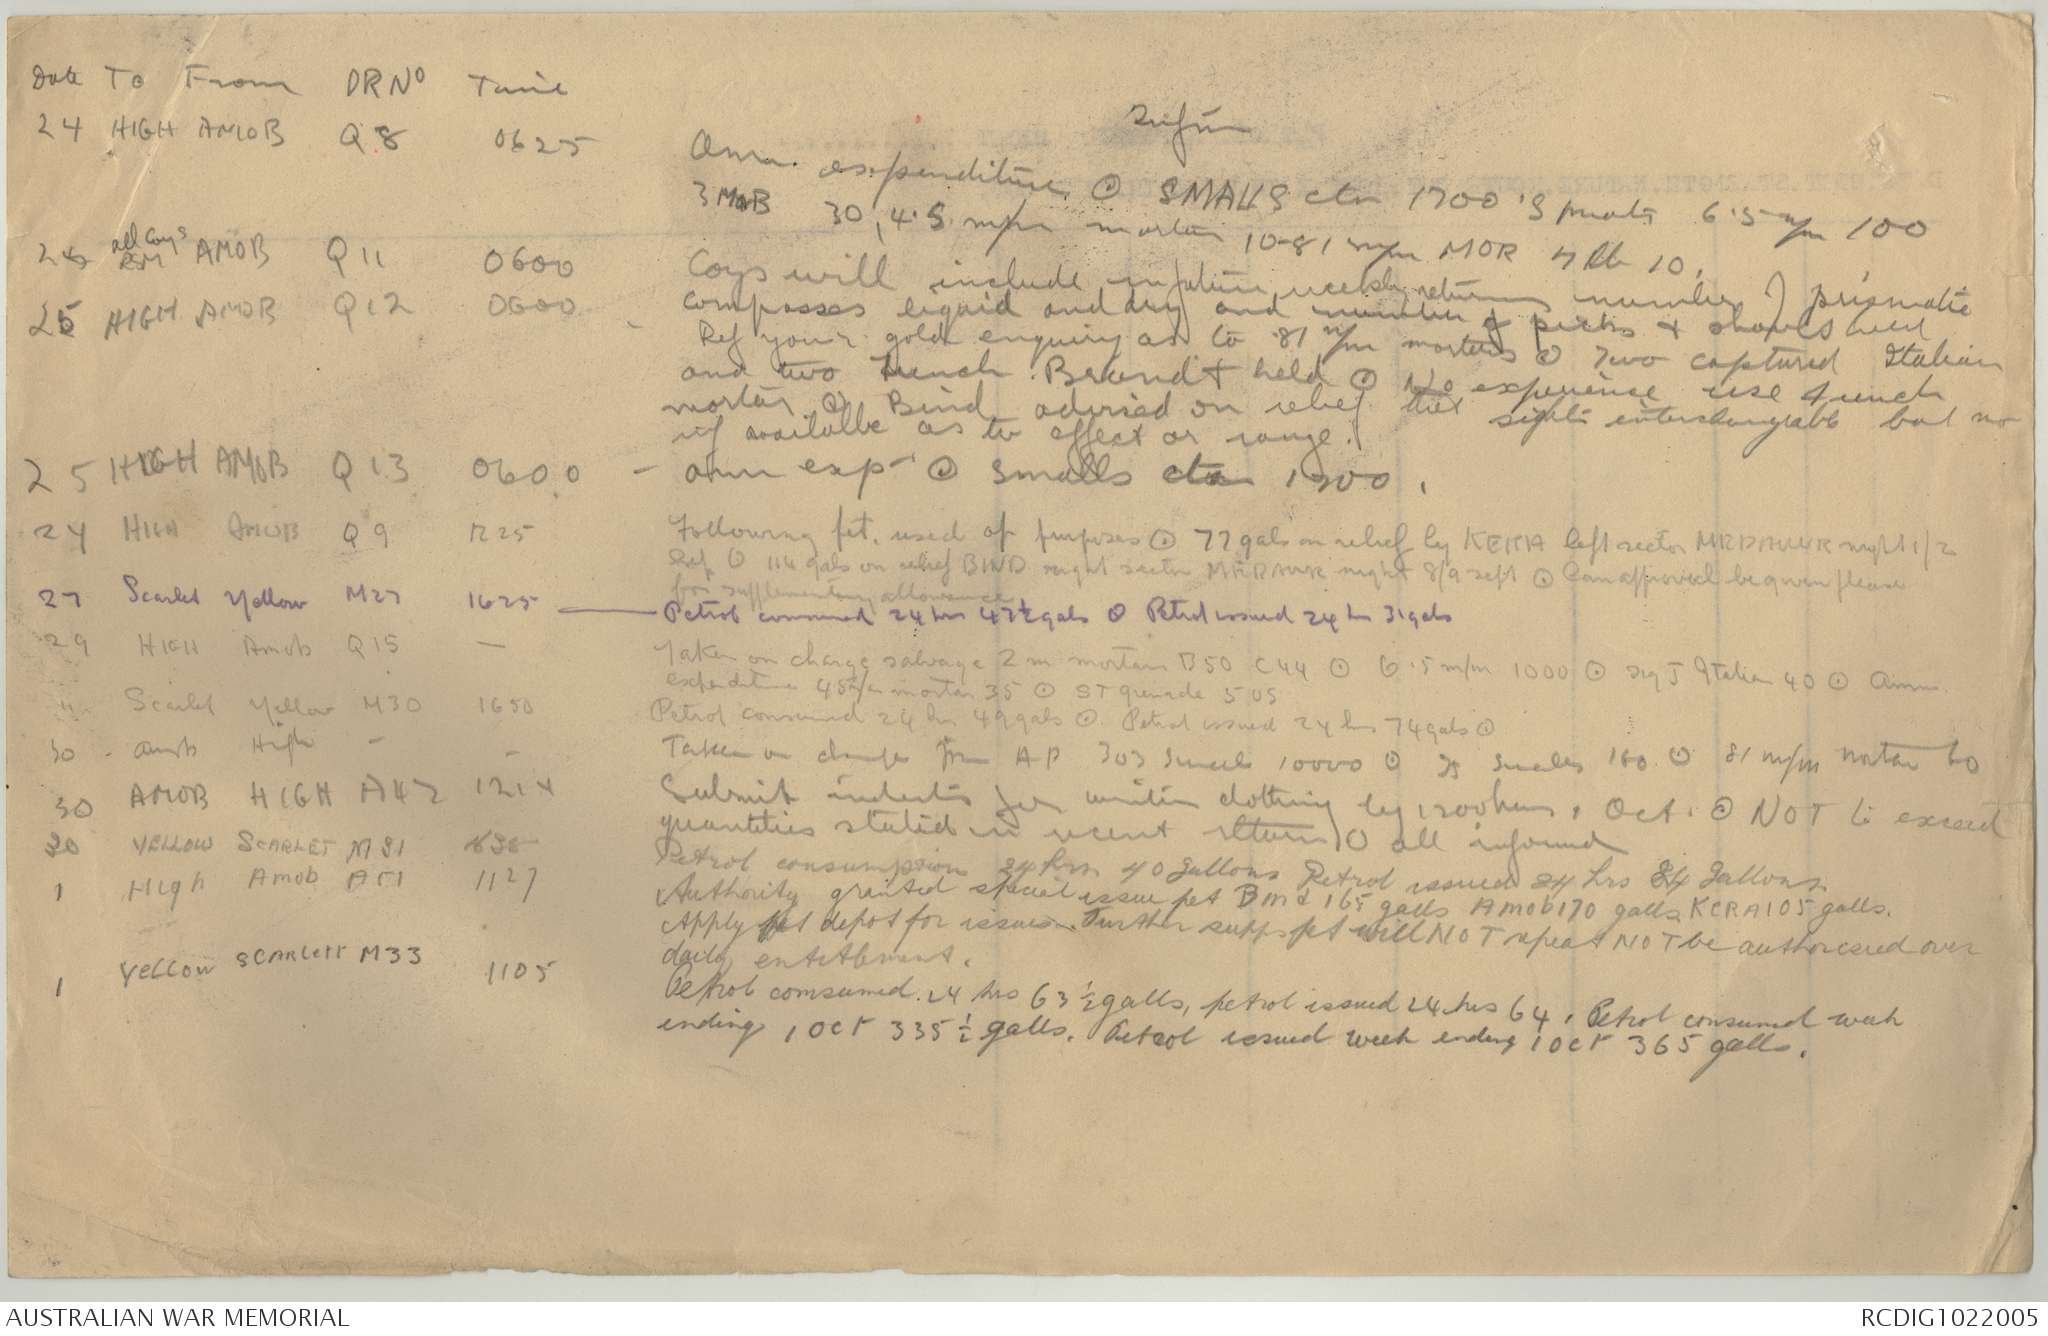 Date To From DR No Time
24 HIGH AMOB Q8 0625
Amn. expenditure ⊙ SMALLS ctn 1700 6.5 m/m 100
30, 4.5 m/m mortar 10 - 81 m/m MOR 7 lb 10.
25 all Coys RSM AMOB Q11 0600
Coys will include in future weekly returns number of prismatic
compasses liquid and dry and number of picks & shovels held
25 HIGH AMOB Q12 0600 -
Ref your enquiry as to 81 m/m mortars ⊙ Two captured Italian
and two French Brandt held ⊙ No experience use French
mortar ⊙ Bind advised on relief that sights interchangeable but no
inf available as to effect or range.
25 HIGH AMOB Q13 0600 - amn exp ⊙ smalls ctn 1200.
24 HIGH AMOB Q9 1225
Following pet. used op purposes ⊙ 77 gals on relief by KERA left sector night 1/2
Sep ⊙ 114 gals on relief BIND right sector night 8/9 sept ⊙ Can approval be given please
for supplementary allowance
27 Scarlet Yellow M27 1625 — Petrol consumed 24 hrs 47½ gals ⊙ Petrol issued 24 hrs 31 gals
29 HIGH Amob Q15 —
Taken on charge salvage 2 m mortars B50 C44 ⊙ 6.5 m/m 1000 ⊙ Italian 40 ⊙ Amn
expenditure 45 m/m mortar 35 ⊙ ST grenade 5
" Scarlet Yellow M30 1650
Petrol consumed 24 hrs 49 gals ⊙ Petrol issued 24 hrs 74 gals ⊙
30 - amob High - -
Taken on charge from A P 303 10000 ⊙ 180 ⊙ 81 m/m mortar 60
30 AMOB HIGH A47 1214
Submit indents for winter clothing by 1200 hrs 1 Oct. ⊙ NOT to exceed
quantities stated in recent return ⊙ all informed
30 YELLOW SCARLET M31
Petrol consumption 24 hrs 40 gallons Petrol issued 24 hrs 84 gallons.
1 High Amob AF1 1127
Authority granted special issue pet Bind 165 galls Amob 170 galls KERA 105 galls.
Apply pet depot for issue. Further supp pet will NOT repeat NOT be authorised over
daily entitlement.
1 Yellow SCARLETT M33 1105
Petrol consumed 24 hrs 63½ galls, petrol issued 24 hrs 64. Petrol consumed week
ending 1 OCT 335½ galls. Petrol issued week ending 1 OCT 365 galls.
AUSTRALIAN WAR MEMORIAL
RCDIG1022005